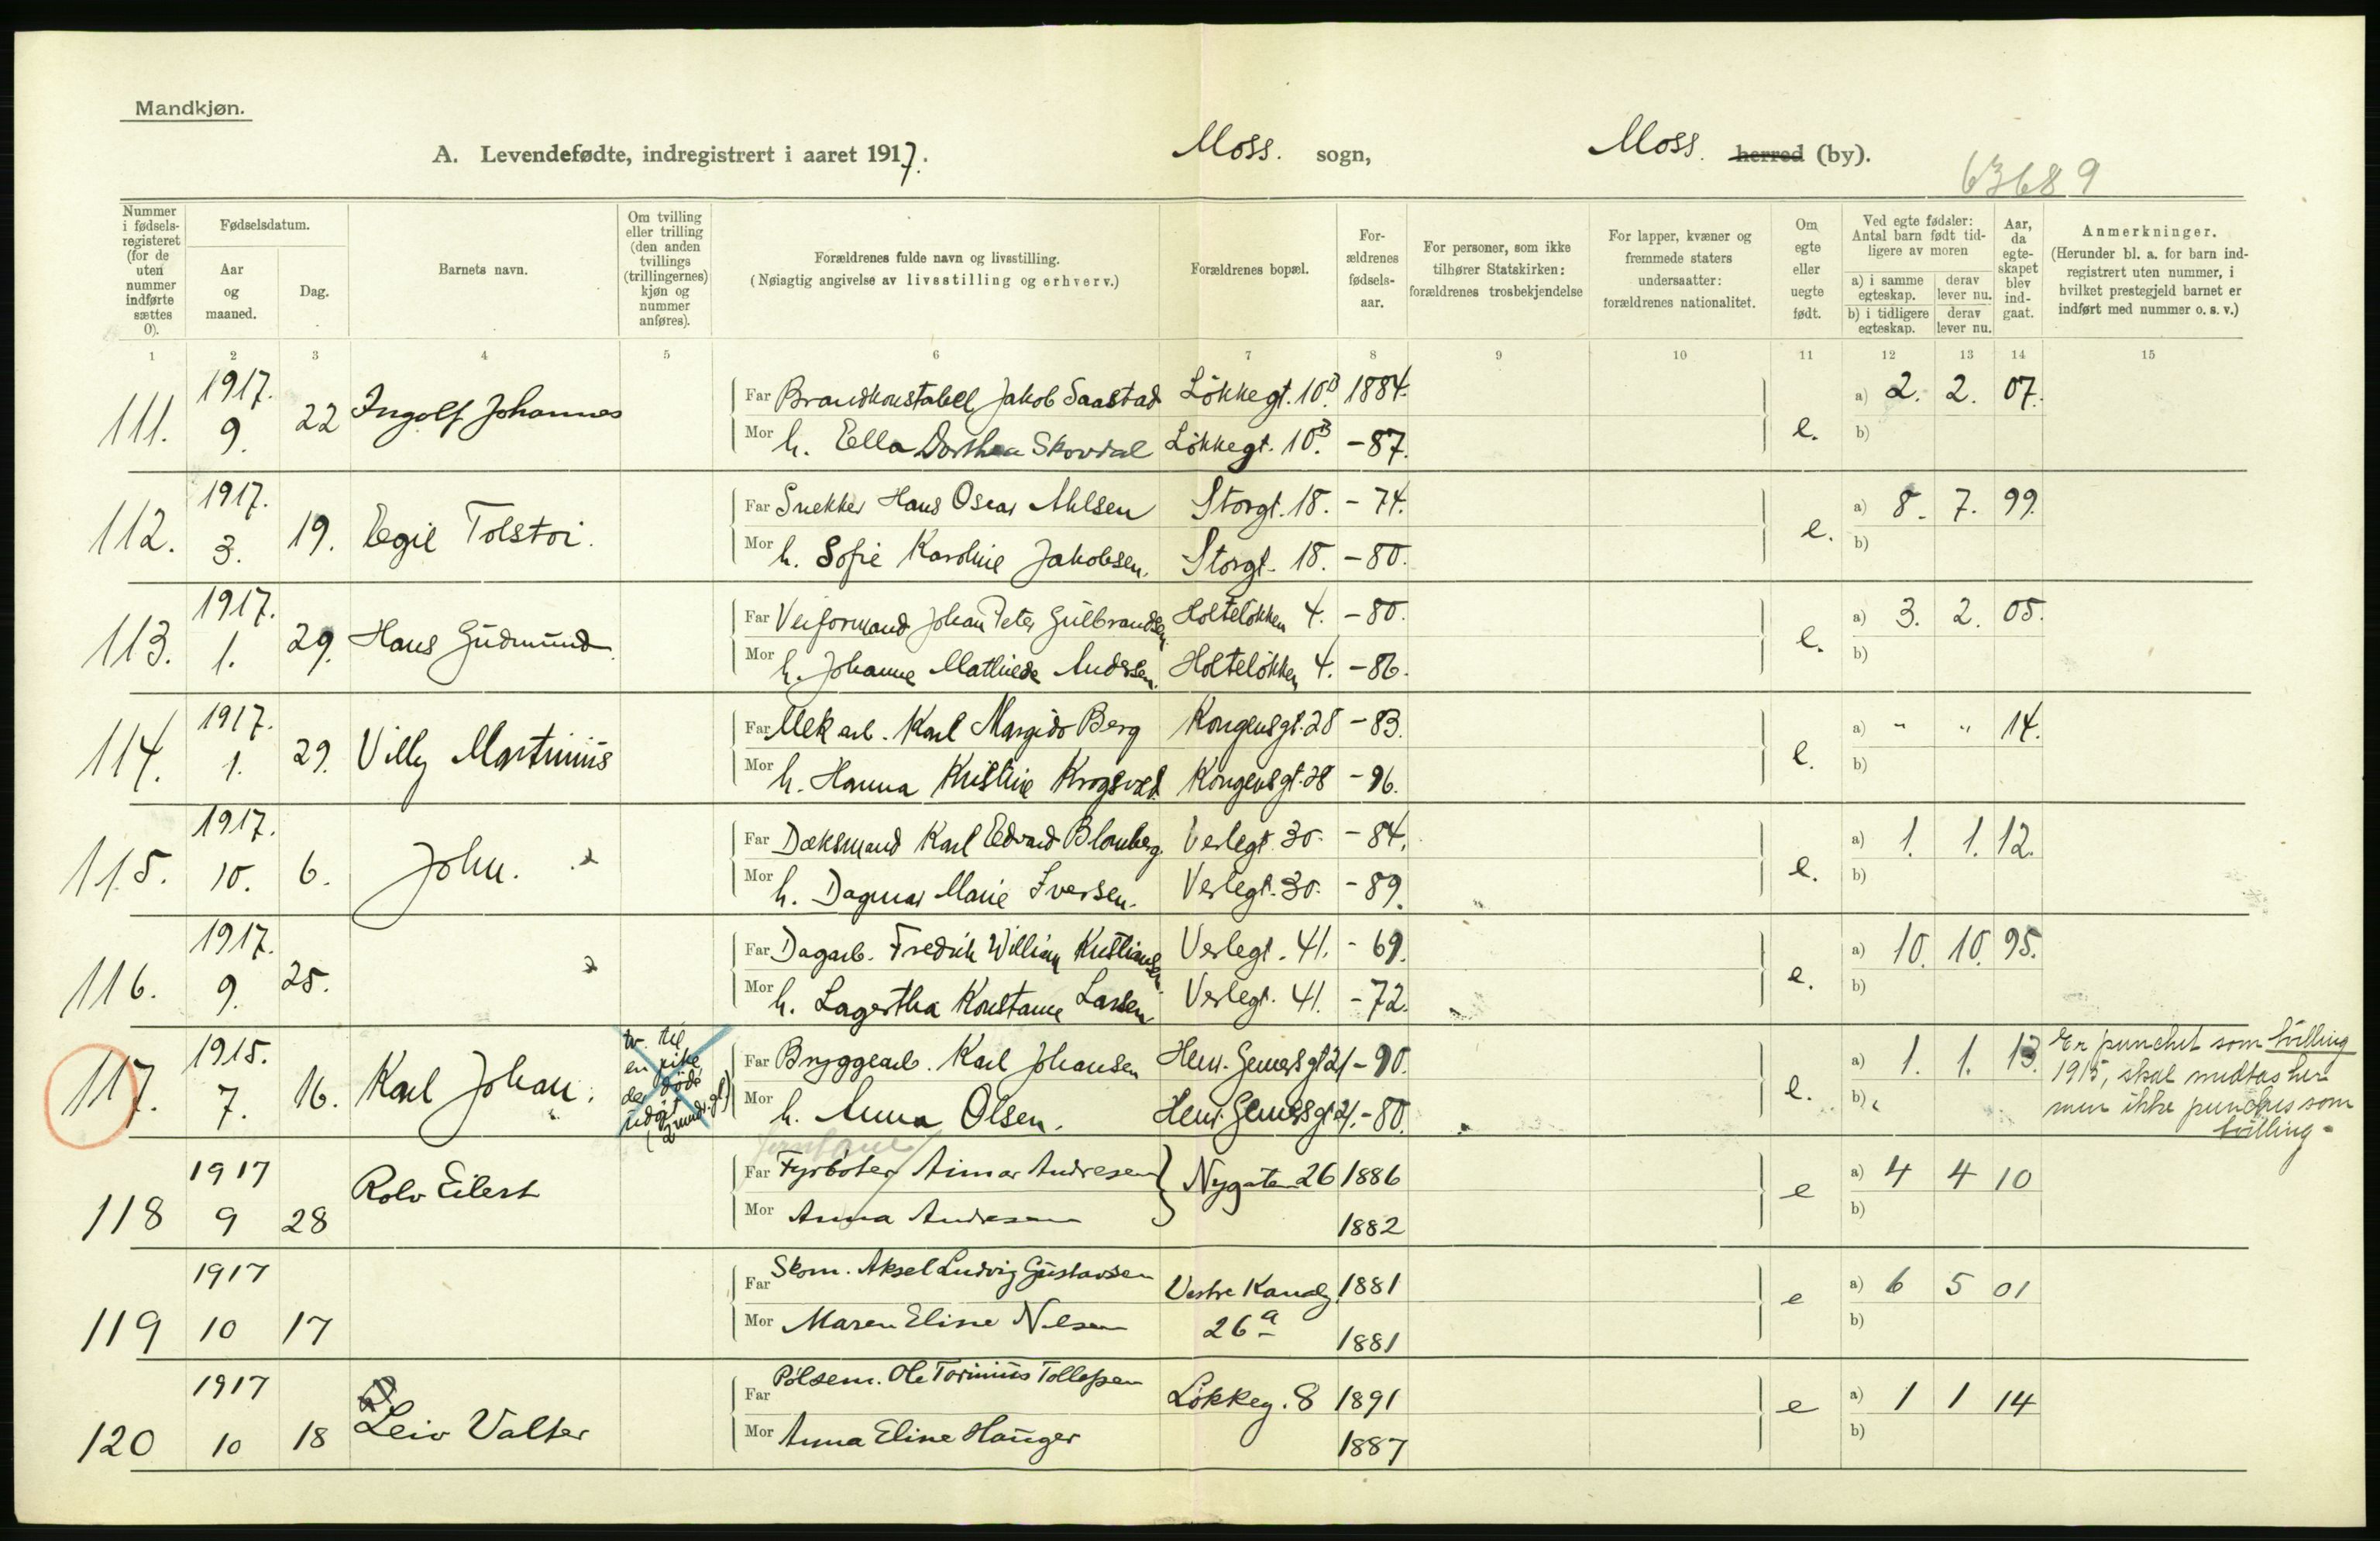 Mandkjøn.
A. Levendefødte, indregistrert i aaret 1917. Moss. sogn, Moss. herred (by).
63689
Nummer i fødsels-registeret (for de uten nummer indførte sættes 0).
Fødselsdatum.
Aar og maaned.
Dag.
Barnets navn.
Om tvilling eller trilling (den anden tvillings (trillingernes) kjøn og nummer anføres).
Forældrenes fulde navn og livsstilling.
(Nøiagtig angivelse av livsstilling og erhverv.)
Forældrenes bopæl.
For-ældrenes fødsels-aar.
For personer, som ikke tilhører Statskirken: forældrenes trosbekjendelse
For lapper, kvæner og fremmede staters undersaatter: forældrenes nationalitet.
Om egte eller uegte født.
Ved egte fødsler: Antal barn født tid-ligere av moren
a) i samme egteskap. derav lever nu.
b) i tidligere egteskap. derav lever nu.
Aar, da egte-skapet blev ind-gaat.
Anmerkninger.
(Herunder bl. a. for barn ind-registrert uten nummer, i hvilket prestegjeld barnet er indført med nummer o. s. v.)
1 2 3 4 5 6 7 8 9 10 11 12 13 14 15
111. 1917. 9. 22 Ingolf Johannes
Far Brandkonstabel Jakob Saastad Løkkegt. 10B. 1884.
Mor h. Ella Dorthea Skovdal Løkkegt. 10B. -87.
e. a) 2. 2. 07.
b)
112. 1917. 3. 19. Egil Tolstoi.
Far Snekker Hans Oscar Ahlsen Storgt. 18. - 74.
Mor h. Sofie Karoline Jakobsen. Storgt. 18. - 80.
e. a) 8. 7. 99.
b)
113. 1917. 1. 29. Hans Gudmund
Far Veiformand Johan Peter Gulbrandsen. Holteløkken 4. - 80.
Mor h. Johanne Mathilde Andersen. Holteløkken 4. - 86.
e. a) 3. 2. 05.
b)
114. 1917. 1. 29. Villy Martinius
Far Mek arb. Karl Margido Berg Kongensgt. 28 - 83.
Mor h. Hanna Kristine Krogsvold. Kongensgt. 28 - 96.
e. a) " " 14.
b)
115. 1917. 10. 6. John.
Far Dæksmand Karl Edvard Blomberg. Verlegt. 30. - 84.
Mor h. Dagmar Marie Iversen. Verlegt. 30. - 89.
e. a) 1. 1. 12.
b)
116. 1917. 9. 25.
Far Dagarb. Fredrik William Kristiansen. Verlegt. 41. - 69.
Mor h. Lagertha Konstance Larsen Verlegt. 41. - 72.
e. a) 10. 10. 95.
b)
117. 1915. 7. 16. Karl Johan.
tv. til
en pike
der døde
udøpt
(2 mndr. gl)
Far Bryggearb. Karl Johansen Henr. Gerners gt 21 - 90.
Mor h. Anna Olsen. Henr. Gerners gt 21. - 80.
e. a) 1. 1. 13.
b)
Er punchet som tvilling
1915, skal medtas her
men ikke punches som
tvilling.
118 1917 9 28 Rolv Eilert
Far Fyrbøter Aimar Andresen Nygaten 26 1886
Mor Anna Andresen 1882
e a) 4 4 10
b)
119 1917 10 17
Far Skom. Aksel Ludvig Gustavsen Vestre Kanalg. 1881
Mor Maren Eline Nilsen 26a 1881
e a) 6 5 01
b)
120 1917 10 18 Leiv Valter
Far Pølsem. Ole Torinius Tollefsen Løkkeg. 8 1891
Mor Anna Eline Hauger 1887
e a) 1 1 14
b)